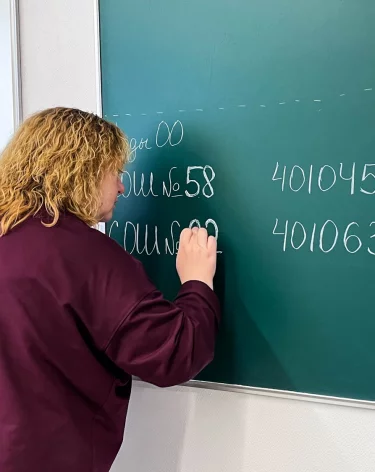 ОО
СОШ №58 401045
СОШ № 401063